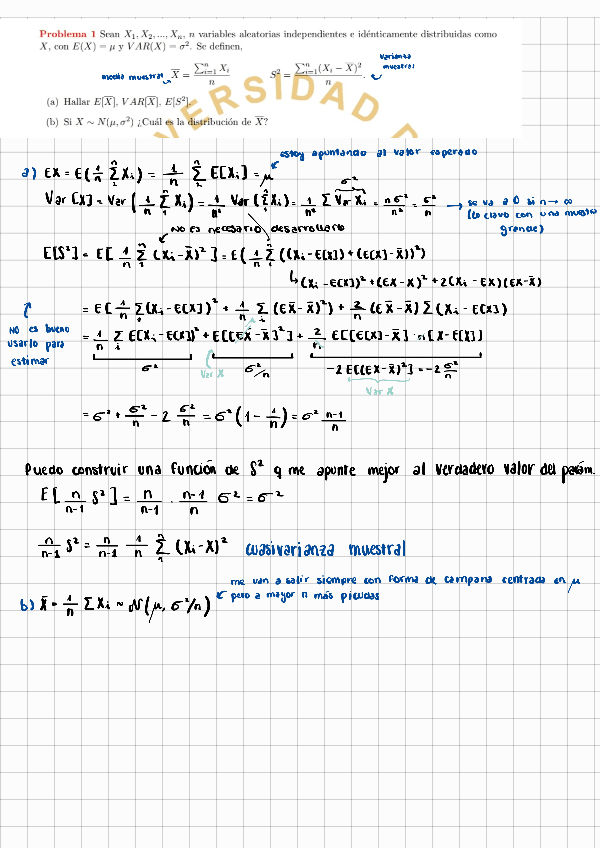 Problema 1 Sean X₁, X₂, ..., Xₙ, n variables aleatorias independientes e idénticamente distribuidas como
X, con E(X) = μ y VAR(X) = σ². Se definen,
media muestral X̄ = ∑ᵢ₌₁ⁿ Xᵢ / n S² = ∑ᵢ₌₁ⁿ (Xᵢ − X̄)² / n . varianza muestral
(a) Hallar E[X̄], VAR[X̄], E[S²].
(b) Si X ∼ N(μ, σ²) ¿Cuál es la distribución de X̄?
VERSIDAD D
estoy apuntando al valor esperado
a) EX = E(1/n ∑ Xᵢ) = 1/n ∑ E[Xᵢ] = μ
Var [X] = Var (1/n ∑ Xᵢ) = 1/n² Var (∑ Xᵢ) = 1/n² ∑ Var Xᵢ = nσ²/n² = σ²/n → se va a 0 si n → ∞
σ²
(lo clavo con una muestra
grande)
no es necesario desarrollarlo
E[S²] = E[1/n ∑ (Xᵢ − X̄)²] = E(1/n ∑ ((Xᵢ − E[X]) + (E[X] − X̄))²)
↳ (Xᵢ − E[X])² + (EX − X)² + 2(Xᵢ − EX)(EX − X̄)
= E[1/n ∑ (Xᵢ − E[X])² + 1/n ∑ (EX̄ − X̄)²) + 2/n (EX̄ − X̄) ∑ (Xᵢ − E[X])
no es bueno
usarlo para
estimar
= 1/n ∑ E[Xᵢ − E[X])² + E[(EX̄ − X̄)²] + 2/n E[[E[X] − X̄] · n[X − E[X]]
σ² Var X σ²/n −2 E[(EX − X̄)²] = −2 σ²/n
Var X
= σ² + σ²/n − 2 σ²/n = σ² (1 − 1/n) = σ² n−1/n
Puedo construir una función de S² q me apunte mejor al verdadero valor del parám.
E[n/n−1 S²] = n/n−1 · n−1/n σ² = σ²
n/n−1 S² = n/n−1 1/n ∑ (Xᵢ − X)² cuasivarianza muestral
me van a salir siempre con forma de campana centrada en μ
pero a mayor n más picudas
b) X̄ = 1/n ∑ Xᵢ ~ N(μ, σ²/n)